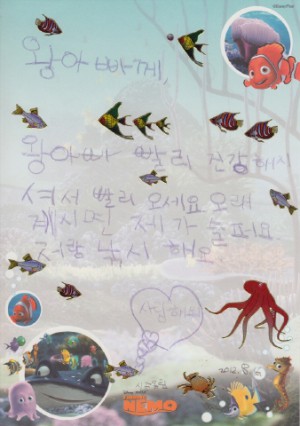 왕아빠께,
왕아빠 빨리 건강해지
셔서 빨리 오세요 오래
계시면 제가 슬퍼요
저랑 낚시 해요
사랑해요
NEMO